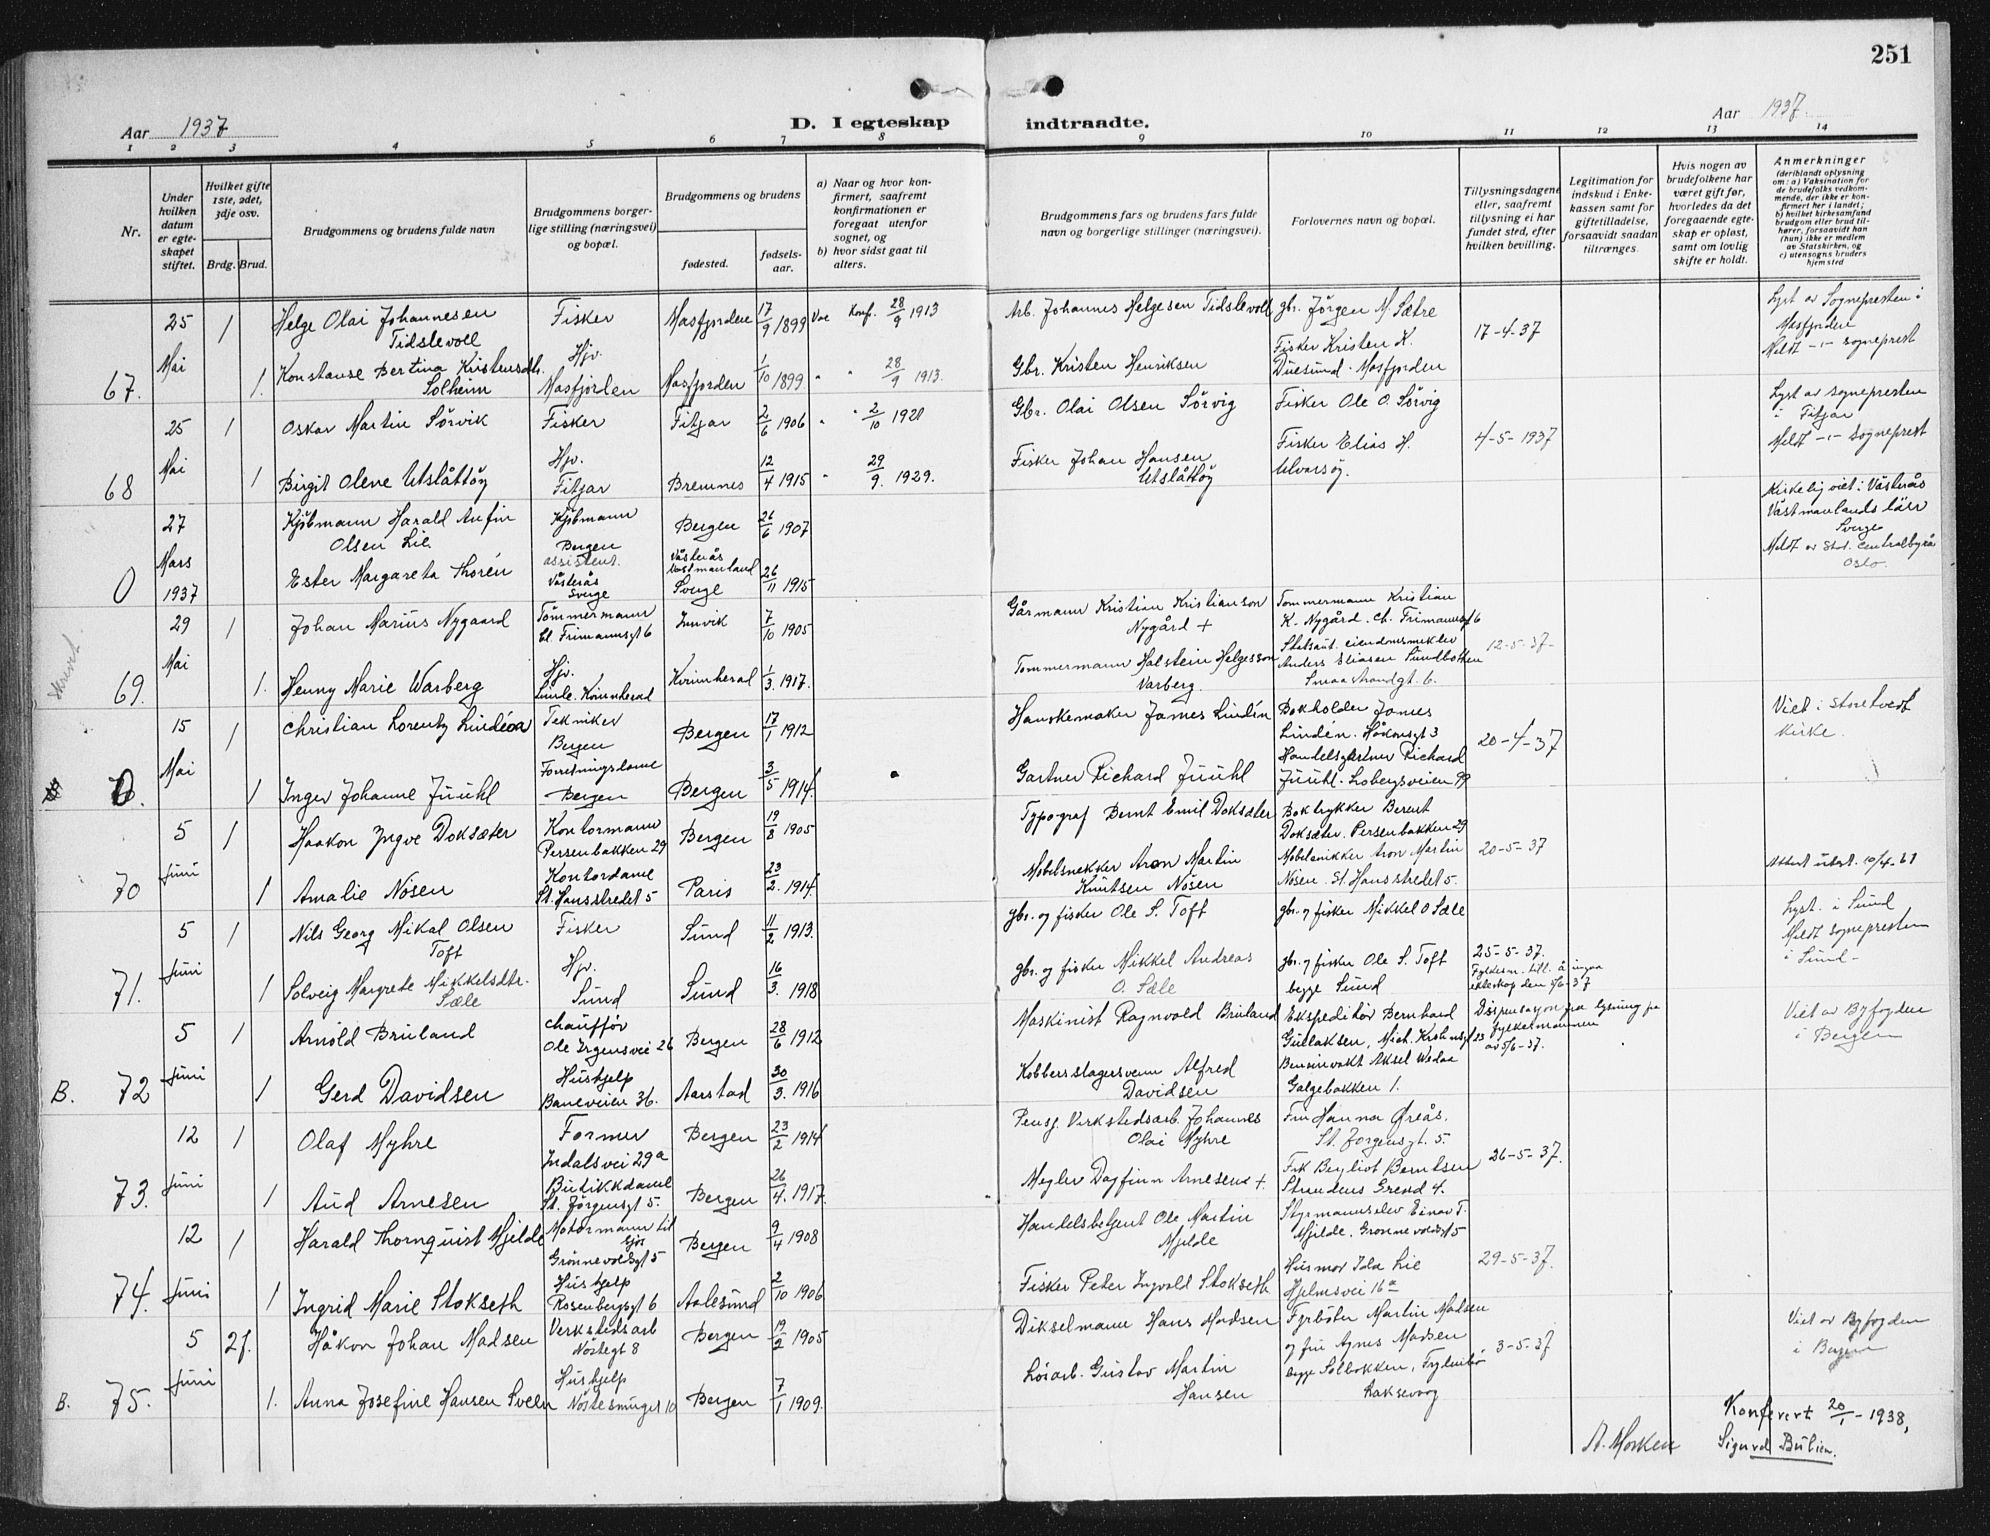 251
Aar 1937
D. I egteskap indtraadte.
Aar 1937.
1 2 3 4 5 6 7 8 9 10 11 12 13 14
Nr.
Under hvilken datum er egteskapet stiftet.
Hvilket gifte 1ste, 2det, 3dje osv.
Brdg. Brud.
Brudgommens og brudens fulde navn
Brudgommens borgerlige stilling (næringsvei) og bopæl.
Brudgommens og brudens
fødested.
fødselsaar.
a) Naar og hvor konfirmert, saafremt konfirmationen er foregaat utenfor sognet, og
b) hvor sidst gaat til alters.
Brudgommens fars og brudens fars fulde navn og borgerlige stillinger (næringsvei).
Forlovernes navn og bopæl.
Tillysningsdagene eller, saafremt tillysning ei har fundet sted, efter hvilken bevilling.
Legitimation for indskud i Enkekassen samt for giftertilladelse, forsaavidt saadan tiltrænges.
Hvis nogen av brudefolkene har været gift før, hvorledes da det foregaaende egteskap er opløst, samt om lovlig skifte er holdt.
Anmerkninger (deriblandt oplysning om: a) Vaksination for de brudefolks vedkommende, der ikke er konfirmert her i landet; b) hvilket kirkesamfund brudgom eller brud tilhører, forsaavidt han (hun) ikke er medlem av Statskirken, og c) utensogns bruders hjemsted
67. 25 Mai 1 Helge Olai Johannesen Tidslevoll Fisker Masfjorden 17/9 1899 Vac Konf. 28/9 1913 Arb. Johannes Helgesen Tidslevoll gbr. Jörgen M. Sætre 17-4-37 Lyst av Sognepresten i Masfjorden
1. Konstanse Bertina Kristensdtr. Solheim Hjv. Masfjorden Masfjorden 1/10 1899 " " 28/9 1913. Gbr. Kristen Henriksen Fisker Kristen K. Duesund. Masfjorden Meldt -"- sogneprest
68 25 Mai 1 Oskar Martin Sörvik Fisker Fitjar 2/6 1906 " " 2/10 1921 Gbr. Olai Olsen Sörvig Fisker Ole O. Sörvig 4-5-1937 Lyst av sognepresten i Fitjar
1 Birgit Olene Utslåttöy Hjv. Fitjar Bremnes 12/4 1915 " 29/9. 1929. Fisker Johan Hansen Utslåttöy Fisker Elias H. Ulvarsöy. Meldt -"- Sogneprest
0 27 Mars 1937 Kjöbmann Harald Anfin Olsen Lie Kjöbmann Bergen Bergen 26/6 1907 Kirkelig viet i Västerås Västmanlands län Sverge
Ester Margareta Thorén assistent. Västerås Sverge Västerås Västmanland Sverge 26/11 1915 Meldt av Stat. Centralbyrå Oslo.
Skrevet
69. 29 Mai 1 Johan Marius Nygaard Tömmermann Cl. Frimannsgt 6 Innvik 7/10 1905 Gårmann Kristian Kristianson Nygård + Tommermann Kristian K. Nygård. Ch. Frimannsgt 6 12-5-37-
1. Henny Marie Warberg Hjv. Kvinnherad Kvinnherad 1/3. 1917. Tommermann Halstein Helgesson Varberg. Statsaut. eiendomsmekler Anders Eliasen Sundbotten Smaa strandgt. 6.
0. 15 Mai 1 Christian Lorentz Lindén Tekniker Bergen Bergen 17/1 1912 Hanskemaker James Lindén Bokholder James Lindén. Håkonsgt 3 20-4-37 Viet i Storetveit Kirke.
1 Inger Johanne Juuhl Forretningsdame Bergen Bergen 3/5 1914. Gartner Richard Juuhl Handelsgartner Richard Juuhl. Lobergsveien 99
70 5 Juni 1 Haakon Yngve Doksæter Kontormann Persenbakken 29 Bergen 19/8 1905 Typograf Bernt Emil Doksæter Boktrykker Berent Doksæter. Persenbakken 29 20-5-37
1 Amalie Nösen Kontordame St. Hansstredet 5 Paris 23/2. 1914 Möbelsnekker Aron Martin Knutsen Nösen Möbelsnikker Aron Martin Nösen. St. Hansstredet 5. Attest utst. 10/4-61
71. 5 Juni 1 Nils Georg Mikal Olsen Toft Fisker Sund 11/2 1913. gbr. og fisker Ole S. Toft gbr. og fisker Mikkel O Sæle 25-5-37. Lyst. i Sund
1 Solveig Margrete Mikkelsdtr. Sæle Hjv. Sund Sund 16/3. 1918 gbr. og fisker Mikkel Andreas O. Sæle gbr. og fisker Ole S. Toft begge Sund Fylkesm. till. å inngaa ekteskap den 1/6-37 Meldt sognepresten i Sund-
B. 72 5 Juni 1 Arnold Bruland Chaufför Ole Irgensvei 26 Bergen 28/6 1912 Maskinist Ragnvald Bruland Ekspeditör Bernhard Gullaksen, Mich. Krohnsgt 23 Dispensasjon fra lysning fra fylkesmannen av 5/6-37. Viet av Byfogden i Bergen
1 Gerd Davidsen Hushjelp Baneveien 36. Aarstad 30/3. 1916 Kobberslagersvenn Alfred Davidsen Bensinvakt Aksel Wedaa Galgebakken 1.
73. 12 Juni 1 Olaf Myhre Former Indalsvei 29a Bergen 23/2 1914 Pensj. Verkstedsarb. Johannes Olai Myhre Fru Hanna Öreås. St. Jorgensgt. 5. 26-5-37.
1 Aud Arnesen Butikkdame St. Jörgensgt 5. Bergen 26/4. 1917. Megler Dagfinn Arnesen + Frk Bergliot Berntsen Strandens Grend 4.
74. 12 Juni 1 Harald Thornquist Mjelde Motormann til sjös Grönnevoldsgt 5 Bergen 9/4 1908 Handelsbetjent Ole Martin Mjelde Styrmannselev Einar T. Mjelde. Grönnevoldsgt 5 29-5-37.
1 Ingrid Marie Stokseth Hushjelp Rosenbergsgt 6 Aalesund 2/10 1906 Fisker Peter Ingvald Stokseth Husmor Ida Lie Hjelmsvei 16a
B. 75. 5 Juni 2f. Håkon Johan Madsen Verkstedsarb Nöstegt 8 Bergen 19/2 1905 Dikselmann Hans Madsen Fyrböter Martin Madsen og fru Agnes Madsen 3-5-37 Viet av Byfogden i Bergen
1. Anna Josefine Hansen Sveen Hushjelp Nöstesmuget 10 Bergen 7/1 1909. Lösarb. Gustav Martin Hansen begge Solbakken, Laksevaag
A. Morken
Konferert 20/1-1938,
Sigurd Bulien.